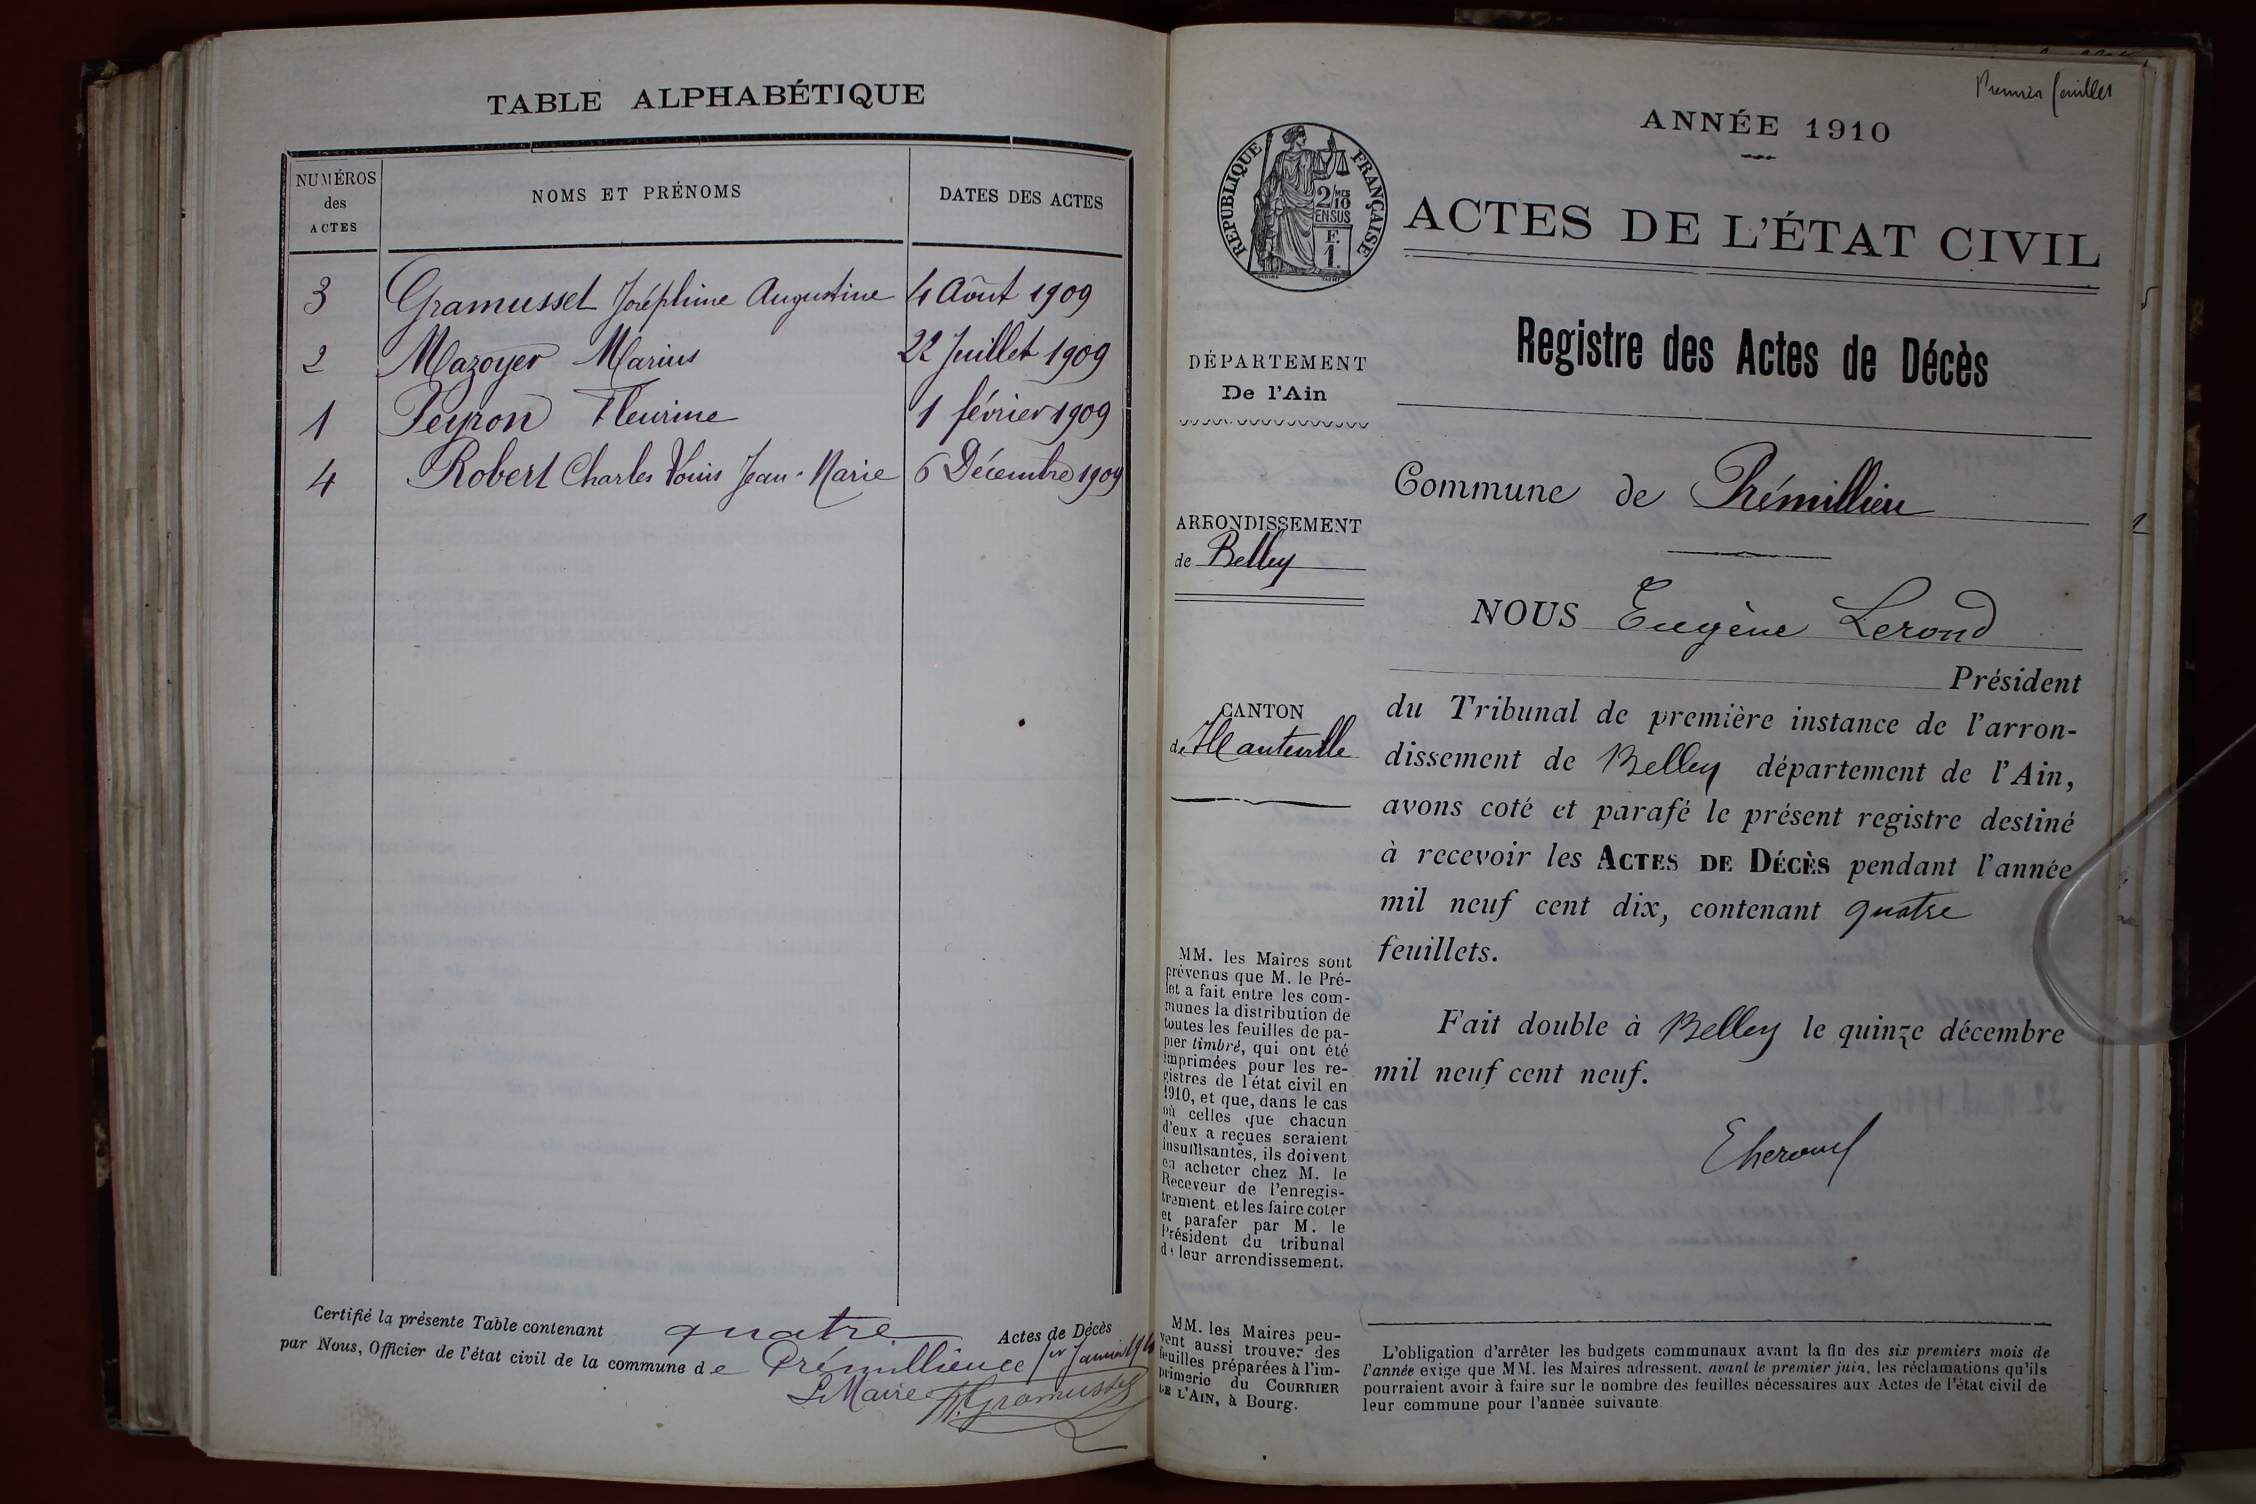 TABLE ALPHABÉTIQUE
NUMÉROS des ACTES
NOMS ET PRÉNOMS
DATES DES ACTES
3 Gramusset Joséphine Augustine 4 Août 1909
2 Mazoyer Marius 22 Juillet 1909
1 Peyron Fleurine 1 février 1909
4 Robert Charles Louis Jean-Marie 6 Décembre 1909
Certifié la présente Table contenant quatre Actes de Décès
par Nous, Officier de l'état civil de la commune de Prémillieu ce 1er Janvier 1910
Le Maire
Gramusset
Premier feuillet
ANNÉE 1910
RÉPUBLIQUE FRANÇAISE
2/10 MES
EN SUS
F.
1.
ACTES DE L'ÉTAT CIVIL
Registre des Actes de Décès
DÉPARTEMENT
De l'Ain
ARRONDISSEMENT
de Belley
CANTON
de Hauteville
Commune de Prémillieu
NOUS Eugène Lerond
Président
du Tribunal de première instance de l'arron-
dissement de Belley département de l'Ain,
avons coté et parafé le présent registre destiné
à recevoir les ACTES DE DÉCÈS pendant l'année
mil neuf cent dix, contenant quatre
feuillets.
Fait double à Belley le quinze décembre
mil neuf cent neuf.
MM. les Maires sont
prévenus que M. le Pré-
fet a fait entre les com-
munes la distribution de
toutes les feuilles de pa-
pier timbré, qui ont été
imprimées pour les re-
gistres de l'état civil en
1910, et que, dans le cas
où celles que chacun
d'eux a reçues seraient
insuffisantes, ils doivent
en acheter chez M. le
Receveur de l'enregis-
trement et les faire coter
et parafer par M. le
Président du tribunal
de leur arrondissement.
MM. les Maires peu-
vent aussi trouver des
feuilles préparées à l'im-
primerie du COURRIER
DE L'AIN, à Bourg.
L'obligation d'arrêter les budgets communaux avant la fin des six premiers mois de
l'année exige que MM. les Maires adressent, avant le premier juin, les réclamations qu'ils
pourraient avoir à faire sur le nombre des feuilles nécessaires aux Actes de l'état civil de
leur commune pour l'année suivante.